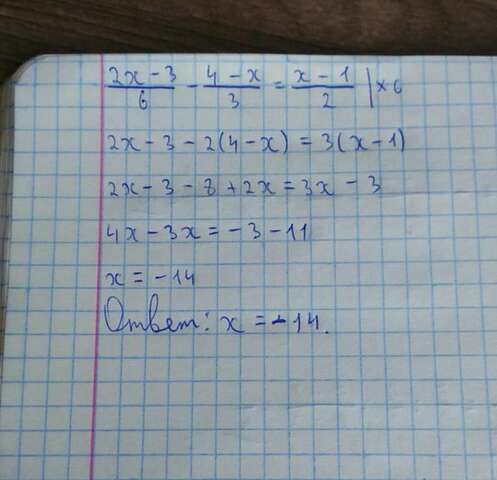 (2x - 3)/6 - (4 - x)/3 = (x - 1)/2 | ×6
2x - 3 - 2(4 - x) = 3(x - 1)
2x - 3 - 8 + 2x = 3x - 3
4x - 3x = - 3 - 11
x = - 14
Ответ: x = - 14.